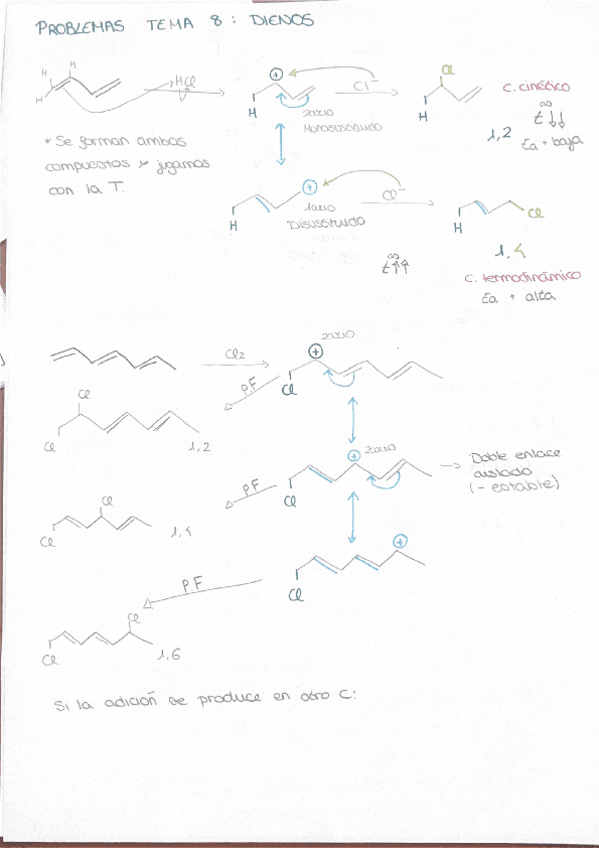 PROBLEMAS TEMA 8: DIENOS
H H
H
HCl
H
2ario
Monosustituido
Cl⁻
Cl
H
1,2
C. cinético
∞
t↓↓
Ea + baja
* Se forman ambos
compuestos y jugamos
con la T.
H
1ario
Disustituido
Cl⁻
H
Cl
1,4
∞
t↑↑
C. termodinámico
Ea + alta
Cl2
2ario
Cl
P.F
Cl
Cl
1,2
2ario
Cl
Doble enlace
aislado
(- estable)
P.F
Cl
Cl
1,4
Cl
P.F
Cl
Cl
1,6
Si la adición se produce en otro C: